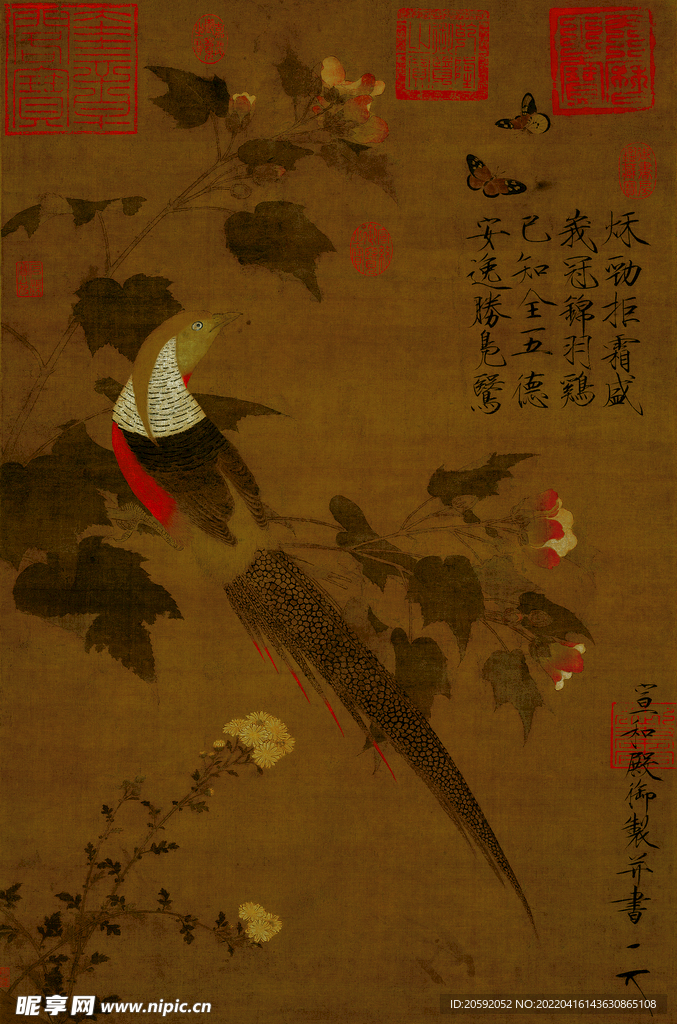 秌勁拒霜盛
峩冠錦羽鷄
已知全五德
安逸勝鳧鷖
宣和殿御製并書
昵享网 www.nipic.cn
ID:20592052 NO:20220416143630865108